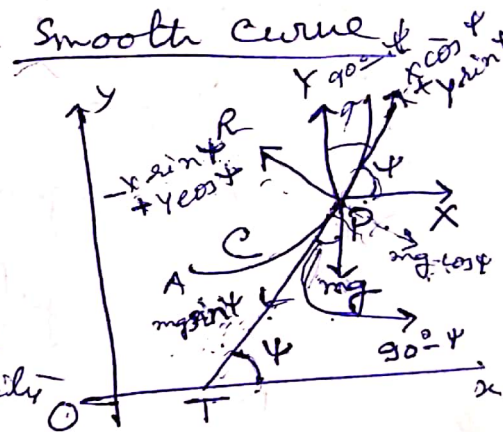 Smooth Curve
Y 90°-ψ
X cos ψ
+ Y sin ψ
y
R
-X sin ψ
+ Y cos ψ
ψ
P
X
C
A
mg cos ψ
mg sin ψ
mg
ψ
90°-ψ
O
T
x